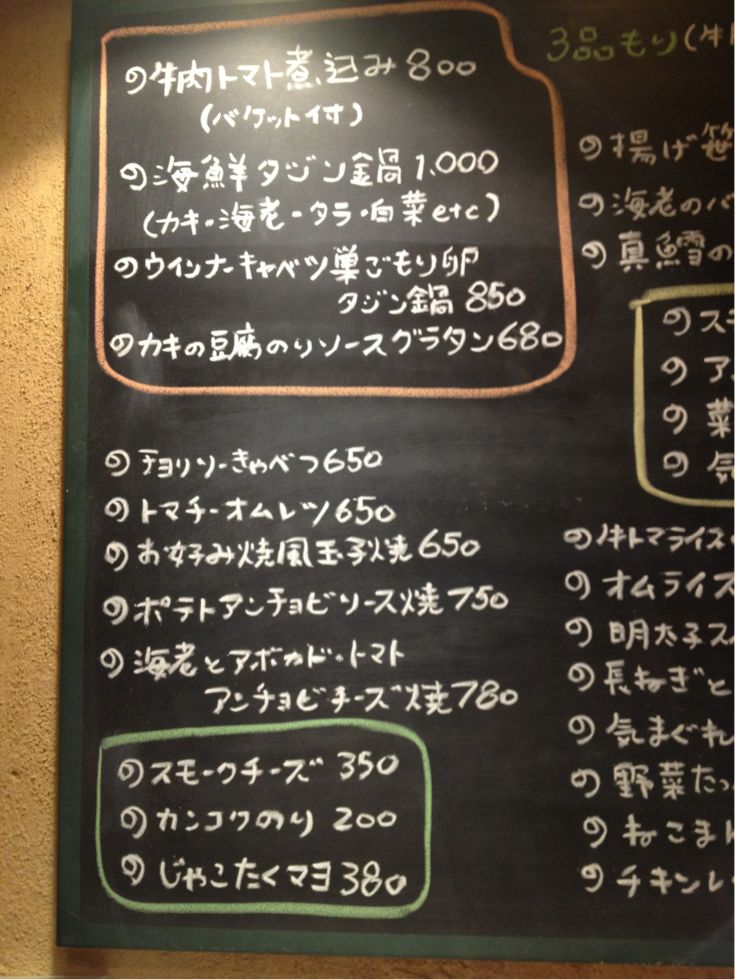 の牛肉トマト煮込み800
(バケット付)
の海鮮タジン鍋1,000
(カキ・海老・タラ・白菜etc)
のウインナーキャベツ巣ごもり卵
タジン鍋850
のカキの豆腐のりソースグラタン680
のチョリソーきゃべつ650
のトマチーオムレツ650
のお好み焼風玉子焼650
のポテトアンチョビソース焼750
の海老とアボカド・トマト
アンチョビチーズ焼780
のスモークチーズ 350
のカンコクのり 200
のじゃこたくマヨ380
3品もり(牛
の揚げ笹
の海老のバ
の真鱈の
のス
のア
の菜
の気
の牛トマライス
のオムライス
の明太子ス
の長ねぎと
の気まぐれ
の野菜たっ
のねこまん
のチキンレ